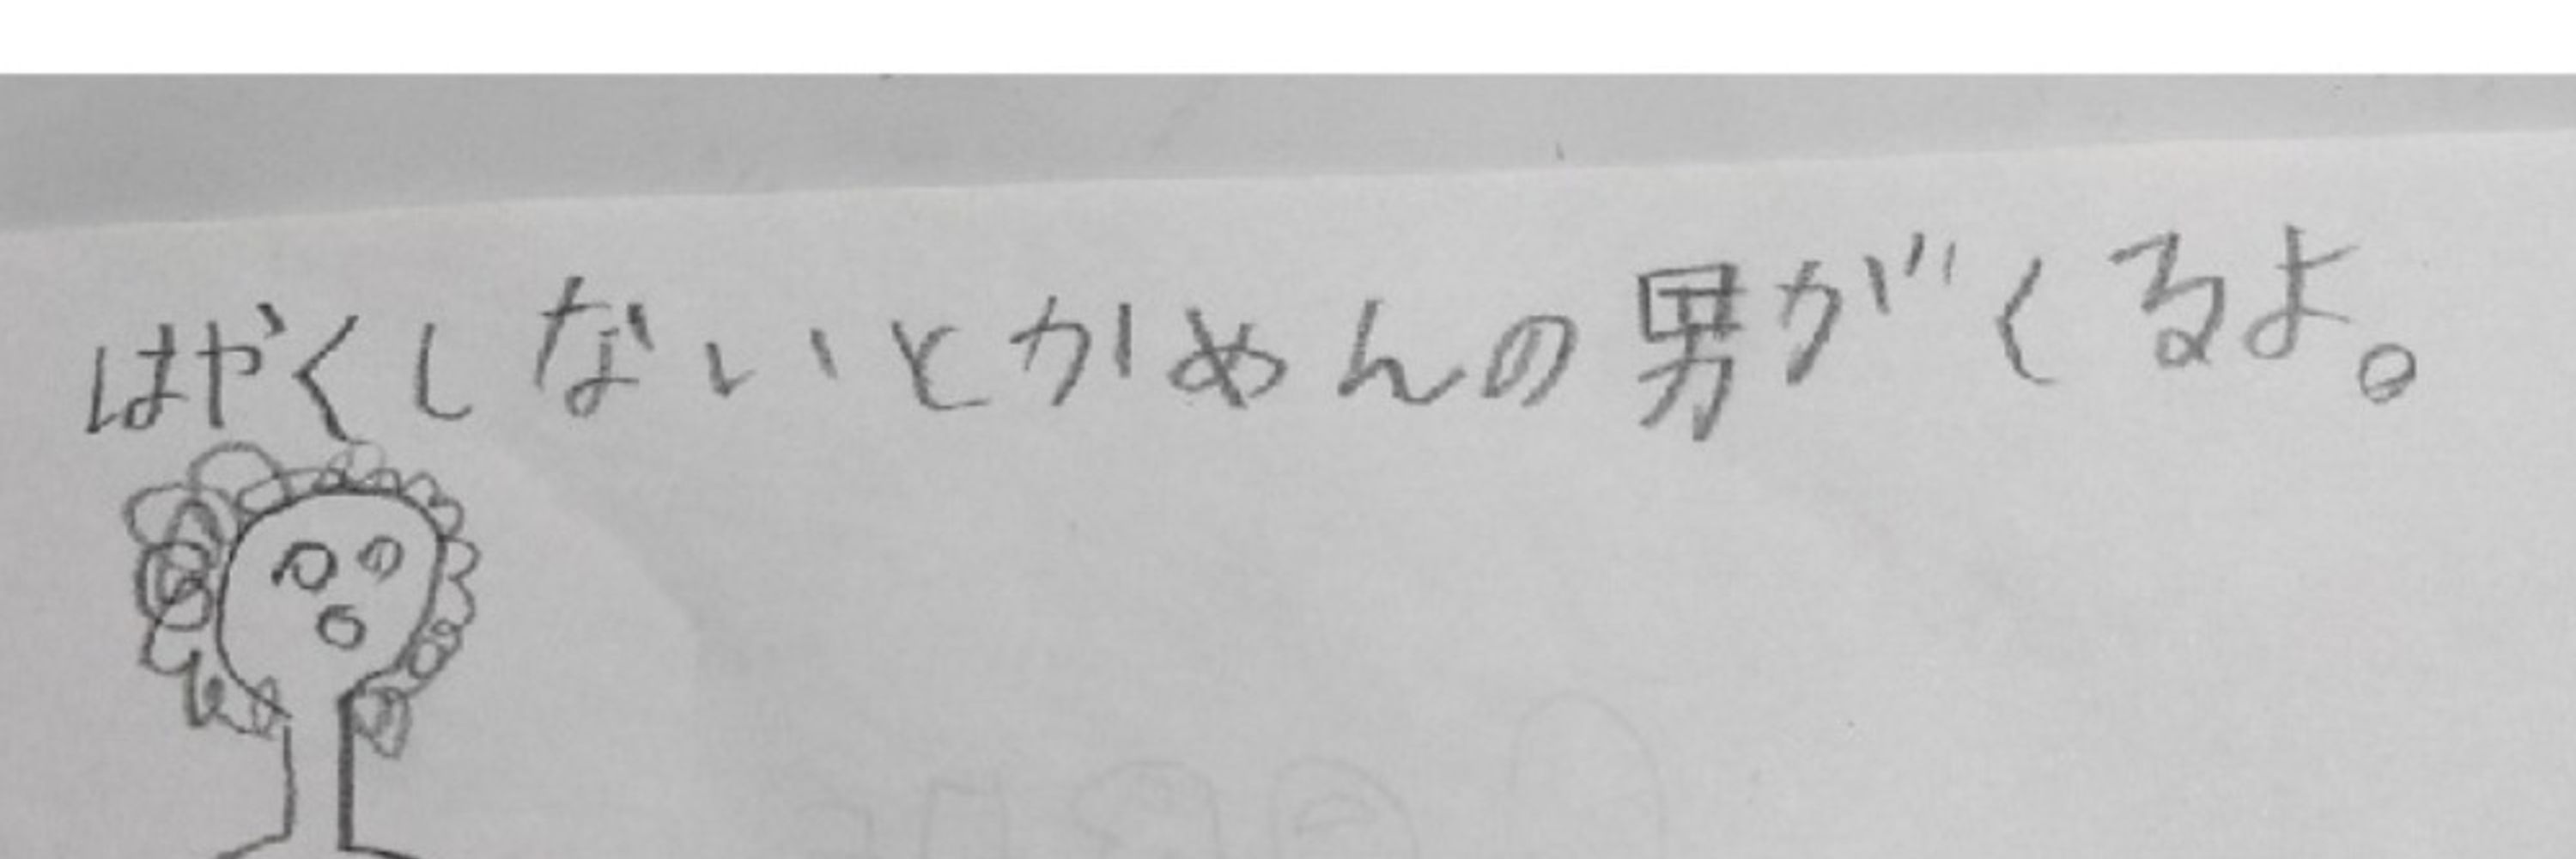 はやくしないとかめんの男がくるよ。